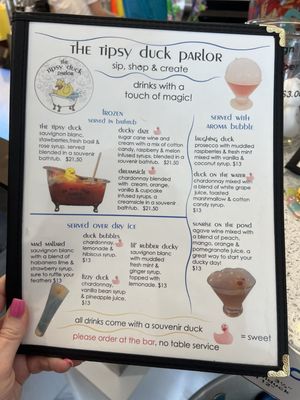 the
tipsy duck
parlor
the tipsy duck parlor
sip, shop & create
drinks with a
touch of magic!
frozen
served in bathtub
the tipsy duck
sauvignon blanc,
strawberries,fresh basil &
rose syrup. served
blended in a souvenir
bathtub. $21.50
ducky daze
sugar cane wine and
cream with a mix of cotton
candy, raspberry & melon
infused syrups. blended
in a souvenir bathtub. $21.50
dreamsicle
chardonnay blended
with cream, orange,
vanilla & cupcake
infused syrups. a
creamsicle in a souvenir
bathtub. $21.50
served with
aroma bubble
laughing duck
prosecco with muddled
raspberries & fresh mint
mixed with vanilla &
coconut syrup. $13
duck on the water
chardonnay mixed with
a blend of white grape
juice, toasted
marshmallow & cotton
candy syrup.
$13
sunrise on the pond
agave wine mixed with
a blend of peach,
mango, orange &
pomegranate juice. a
great way to start your
ducky day!
$13
served over dry ice
mad mallard
sauvignon blanc
with a blend of
habanero lime &
strawberry syrup.
sure to ruffle your
feathers $13
duck bubbles
chardonnay,
lemonade &
hibiscus syrup.
$13
fizzy duck
chardonnay,
vanilla bean syrup
& pineapple juice.
$13
lil' rubber ducky
sauvignon blanc
with muddled
fresh mint &
ginger syrup.
topped with
lemonade. $13
all drinks come with a souvenir duck
= sweet
please order at the bar, no table service